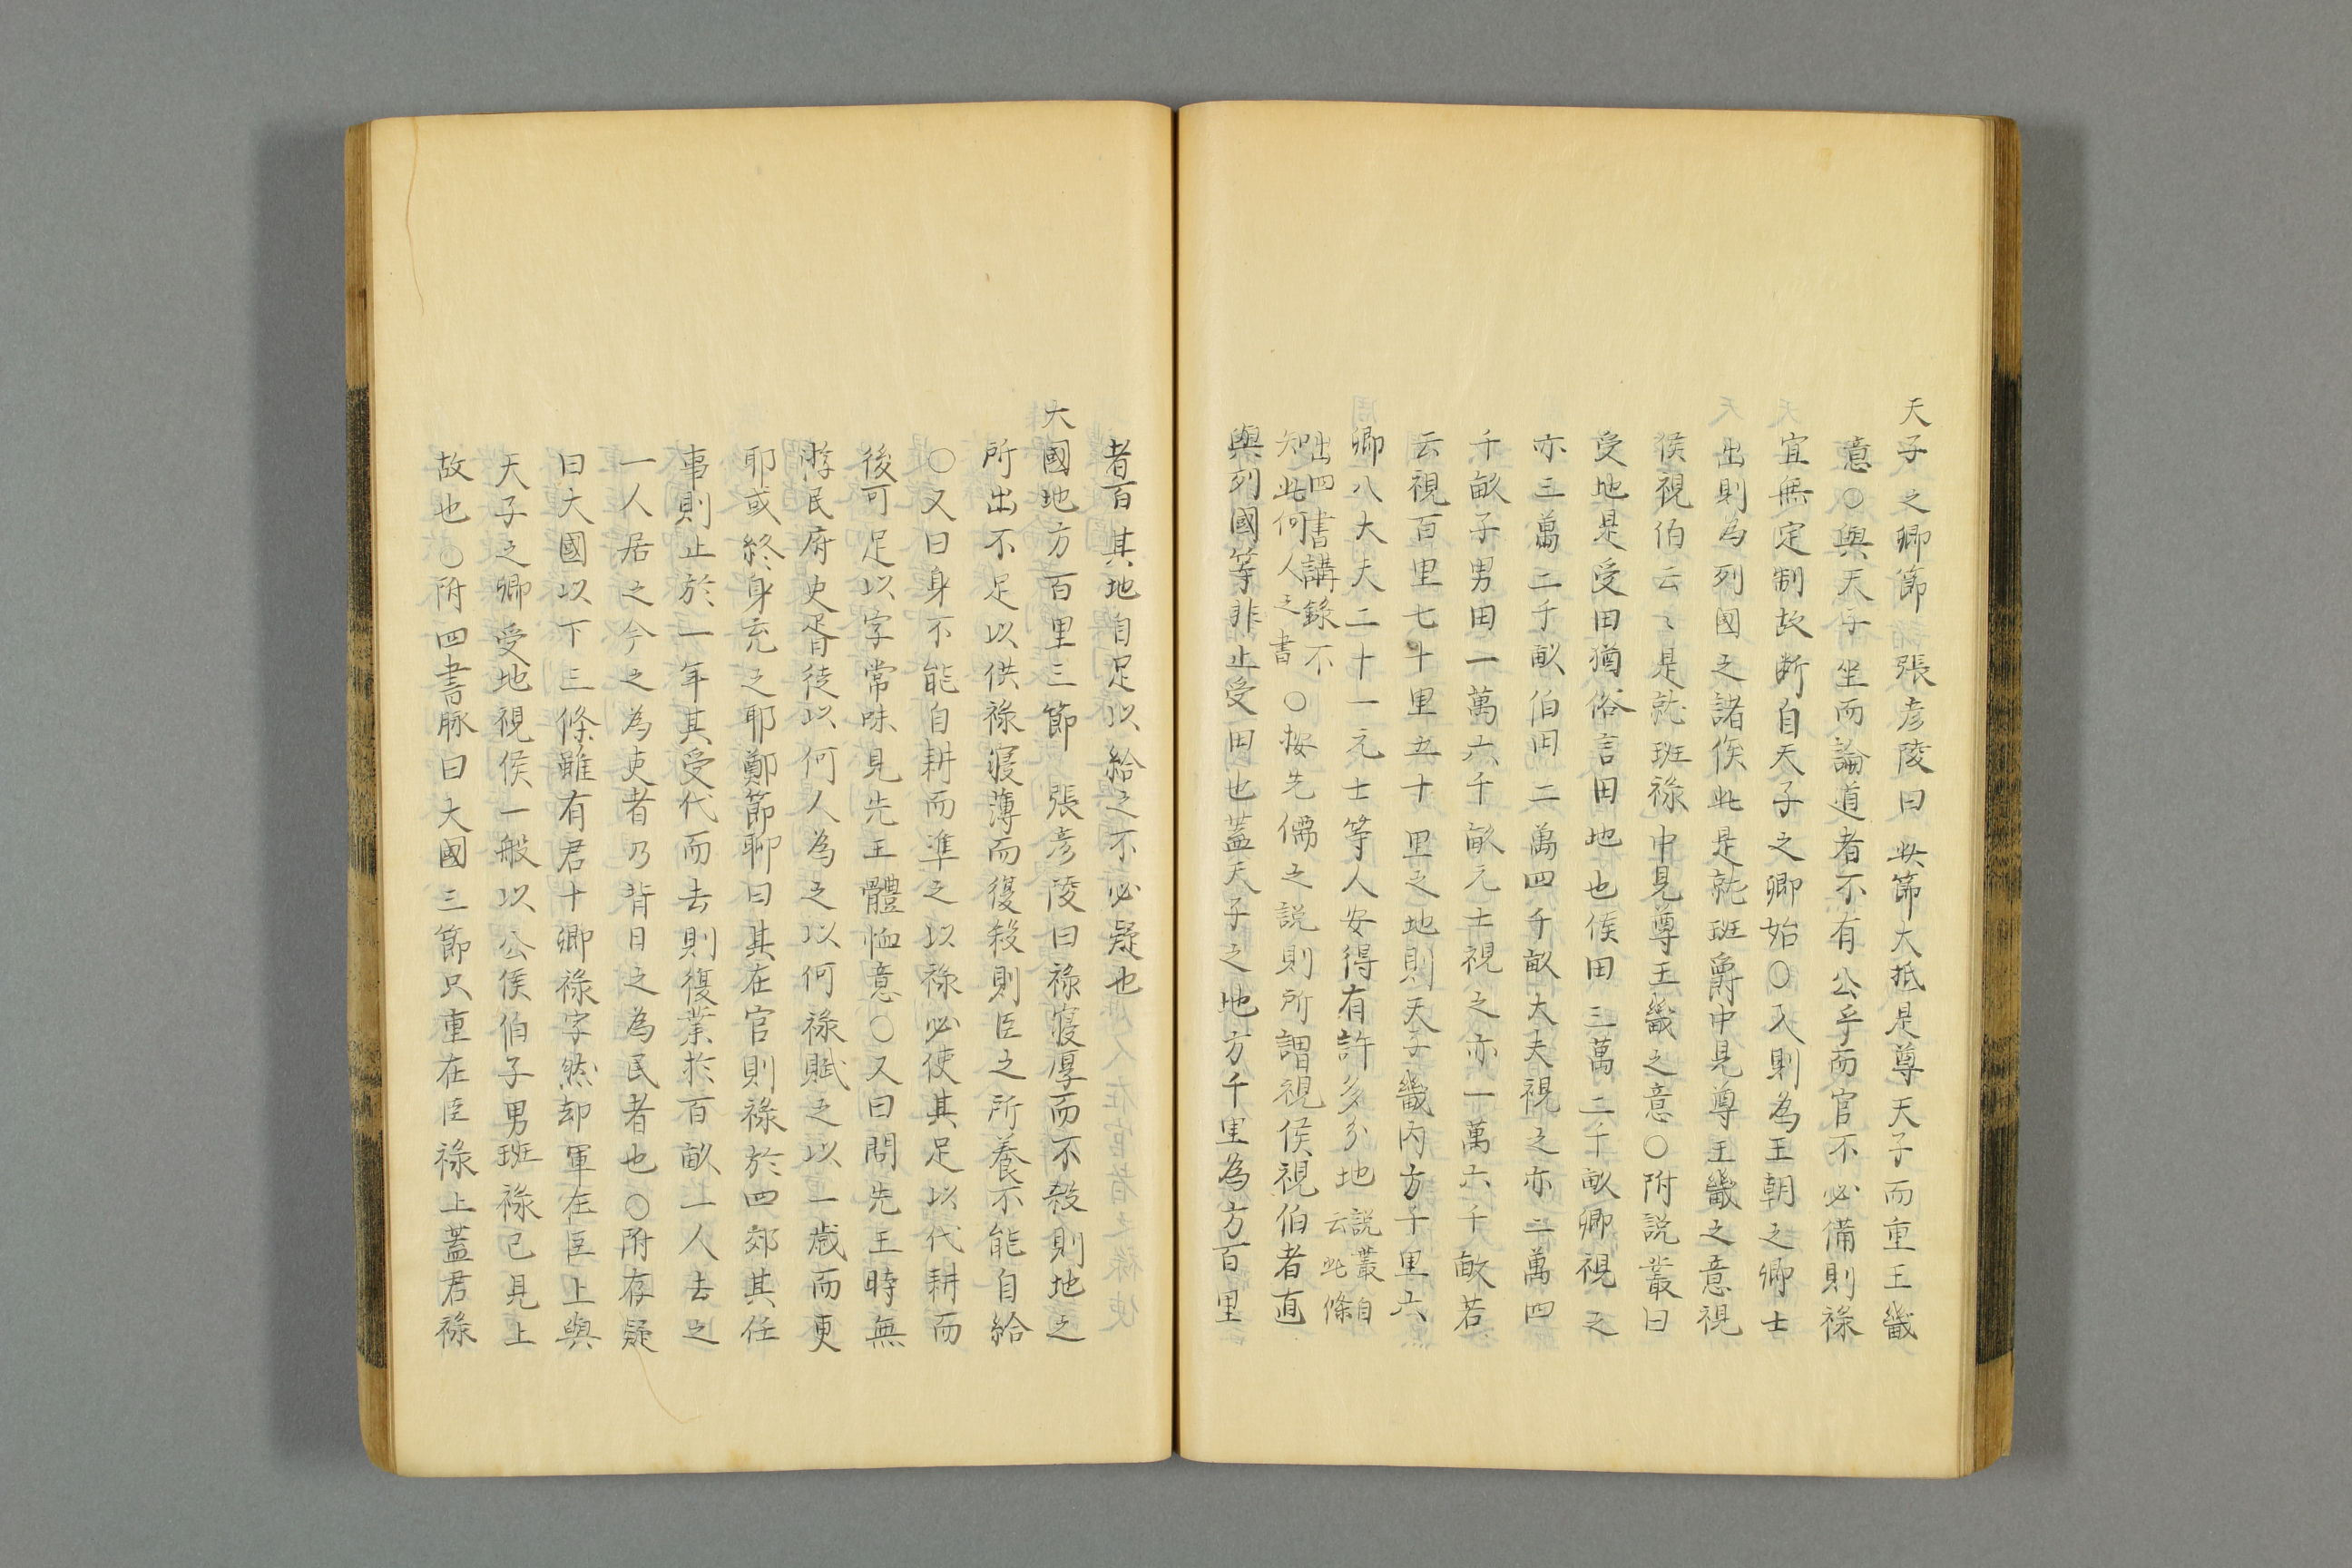 天子之卿節 張彦陵曰此節大抵是尊天子而重王畿
意○與天子坐而論道者不有公乎而官不必備則祿
宜無定制故断自天子之卿始○入則為王朝之卿士
出則為列國之諸侯此是就班爵中見尊王畿之意視
侯視伯云〻是就班祿中見尊王畿之意○附説叢曰
受地是受田猶俗言田地也侯田三萬二千畝卿視之
亦三萬二千畝伯田二萬四千畝大夫視之亦二萬四
千畝子男田一萬六千畝元士視之亦一萬六千畝若
云視百里七十里五十里之地則天子畿内方千里六
卿八大夫二十一元士等人安得有許多分地説叢自云此條
出四書講錄不知此何人之書○按先儒之説則所謂視侯視伯者直
與列國等非止受田也蓋天子之地方千里為方百里
者百其地自足以給之不必疑也
大國地方百里三節 張彦陵曰祿寖厚而不殺則地之
所出不足以供祿寖薄而復殺則臣之所養不能自給
○又曰身不能自耕而準之以祿必使其足以代耕而
後可足以字常味見先王體恤意○又曰問先王時無
游民府史胥徒以何人為之以何祿賦之以一歳而更
耶或終身充之耶鄭節聊曰其在官則祿於四郊其任
事則止於一年其受代而去則復業於百畝一人去之
一人居之今之為吏者乃背日之為民者也○附存疑
曰大國以下三條雖有君十卿祿字然却重在臣上與
天子之卿受地視侯一般以公侯伯子男班祿已見上
故也○附四書脉曰大國三節只重在臣祿上蓋君祿